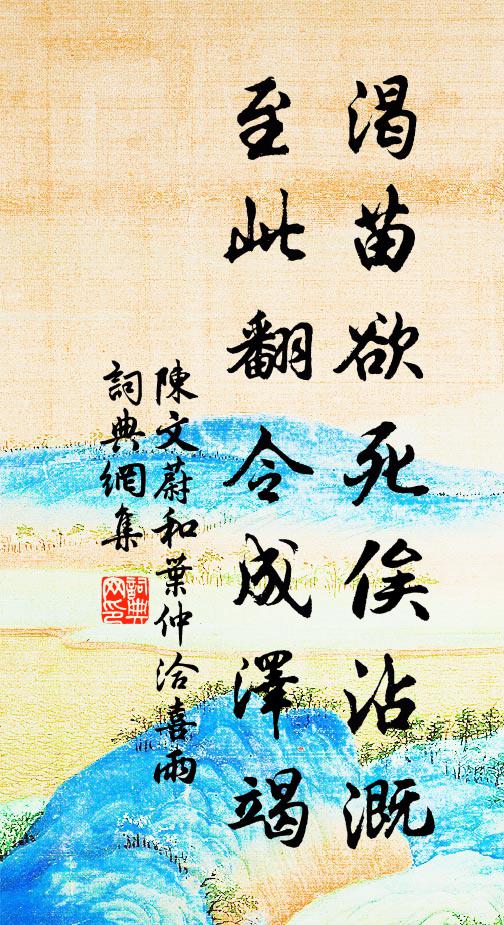 渴苗欲死俟沾溉
至此翻令成澤竭
陳文蔚和葉仲洽喜雨
詞典網集